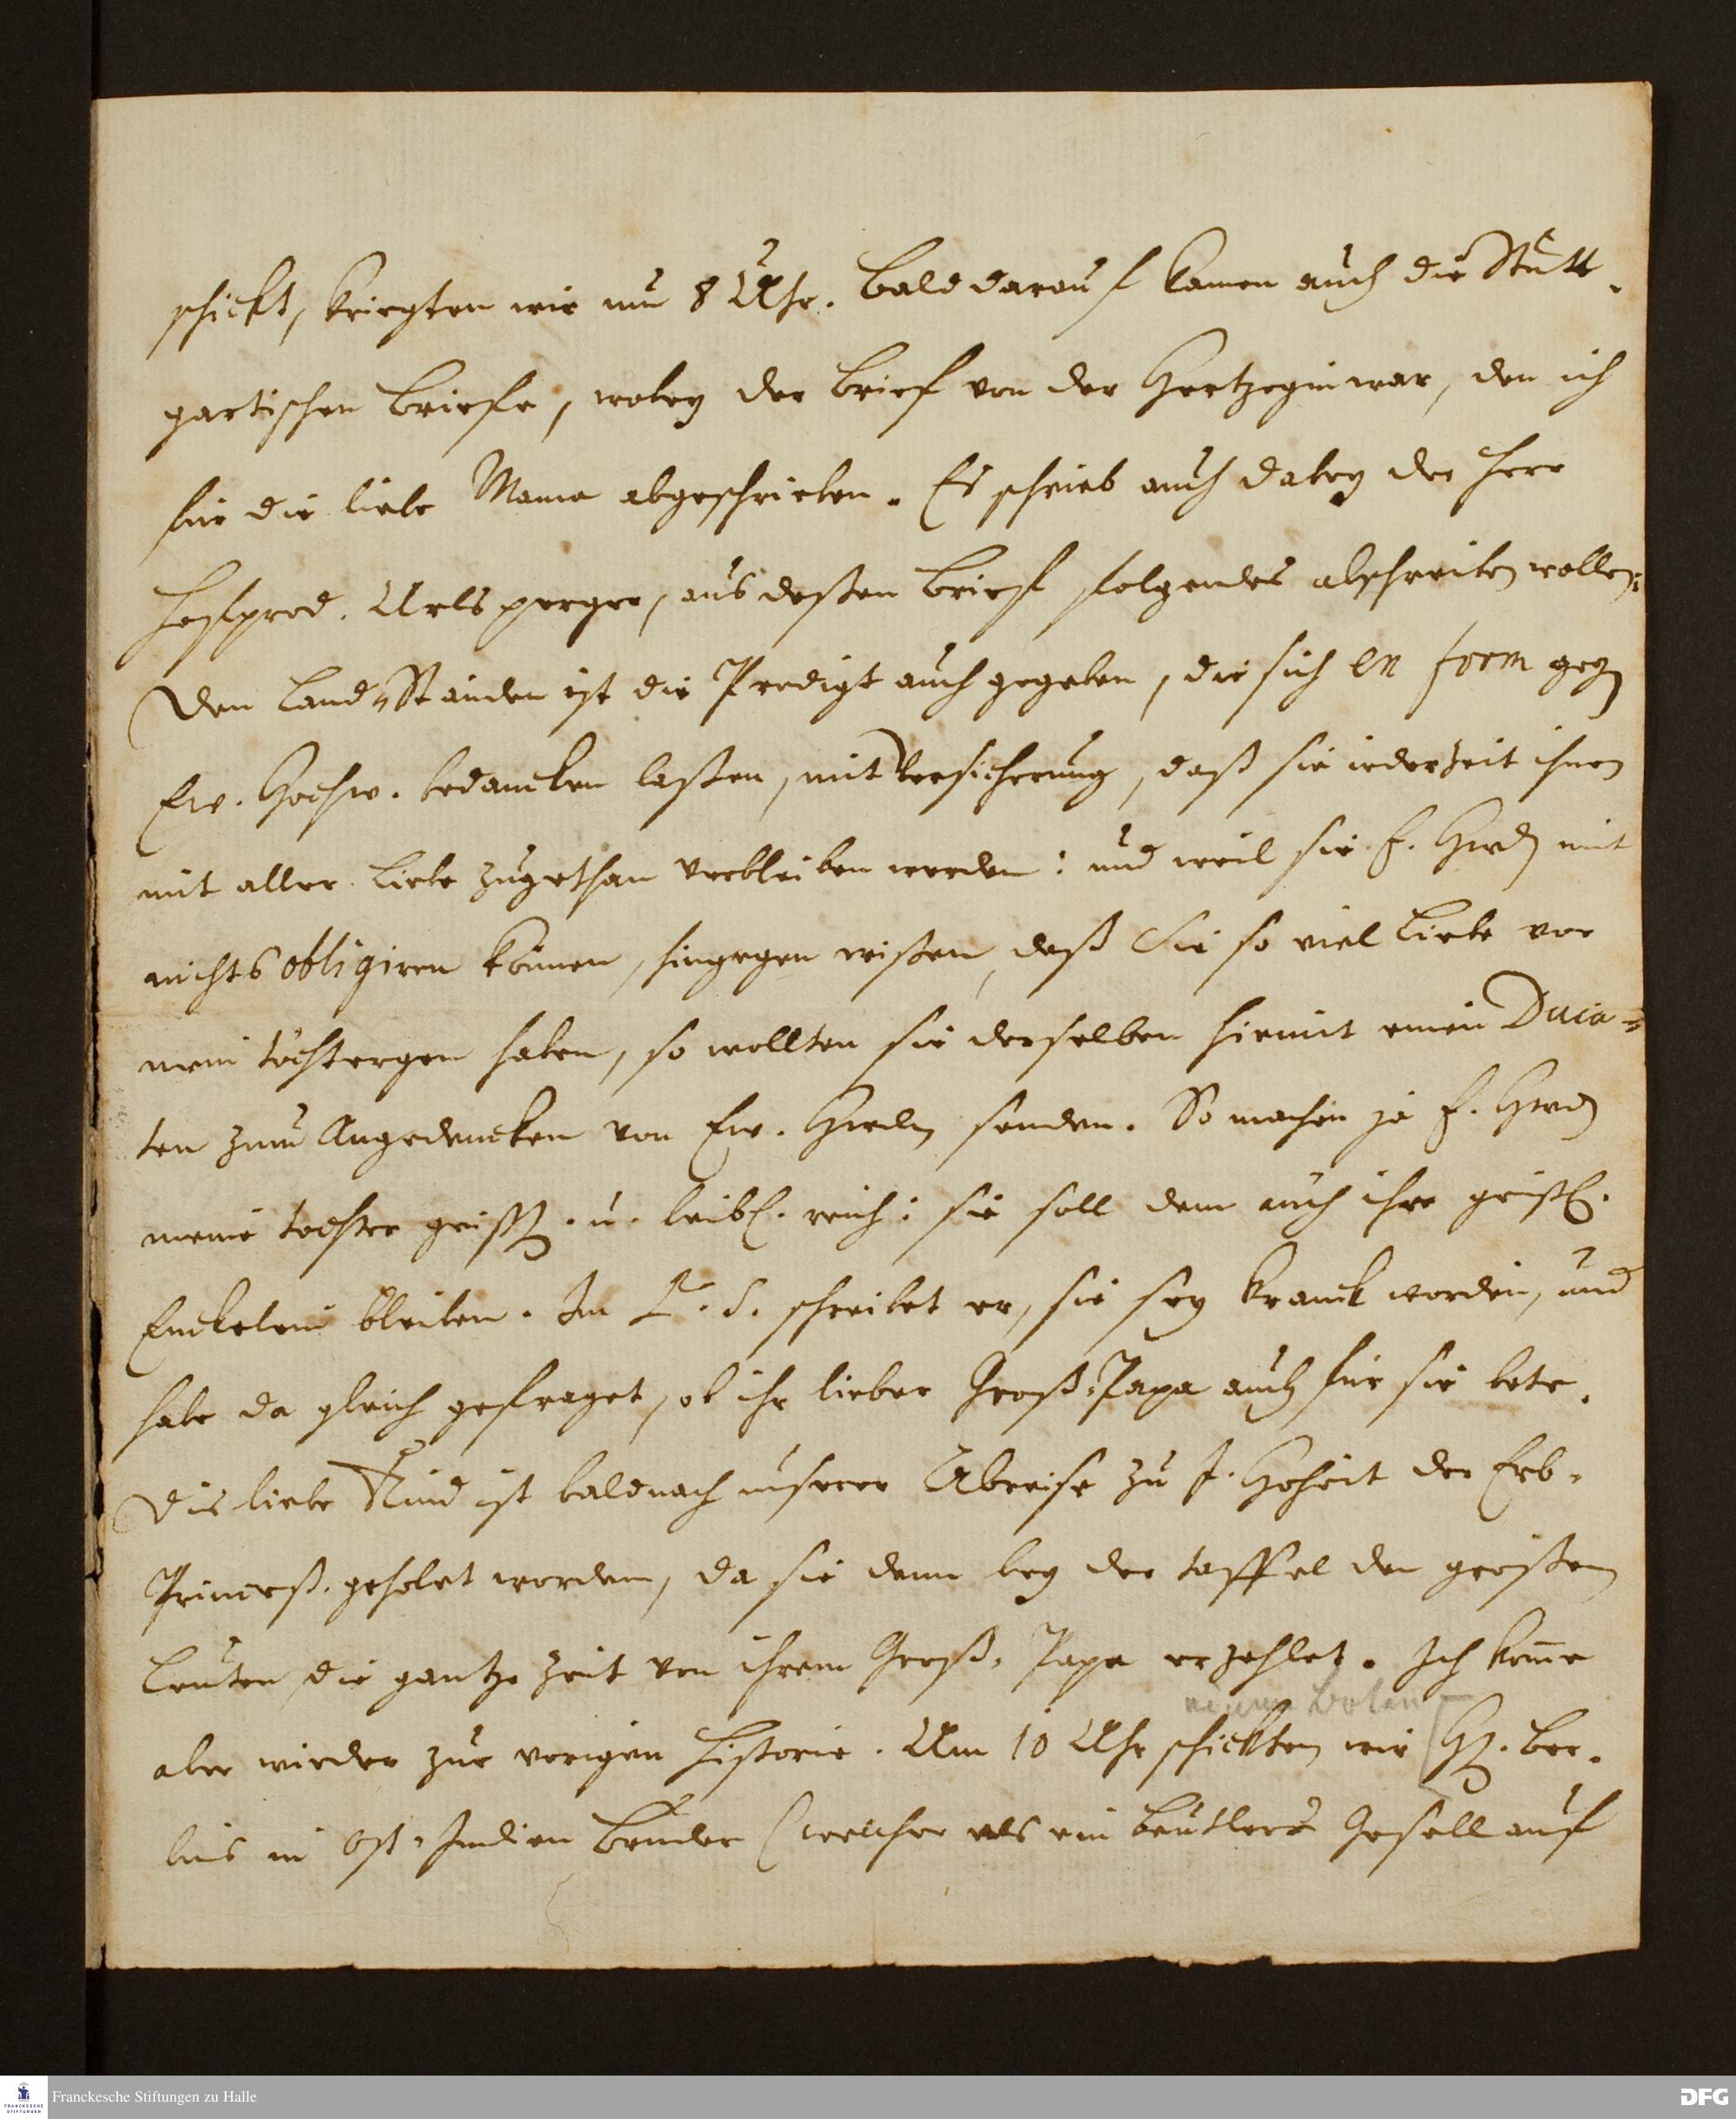 schickt, kriegten wir um 8 Uhr. Bald darauf kamen auch die Stutt-
gartischen Briefe, wobey der Brief von der Hertzogin war, den ich
für die liebe Mama abgeschrieben. Es schrieb auch dabey der Herr
Hofpred. Urlsperger, aus deßen Brief folgendes abschreiben wollen:
Den Land-Ständen ist die Predigt auch gegeben, die sich en form gegen
Ew. Hochw. bedancken laßen, mit Versicherung, daß sie iederzeit ihnen
mit aller Liebe zugethan verbleiben werden: und weil sie E. Hwd mit
nichts obligiren können, hingegen wißen, daß Sie so viel Liebe vor
mein töchtergen haben, so wollten sie derselben hiemit einen Duca-
ten zum Angedencken von Ew. Hwden senden. So machen ja E. Hwd
meine tochter geistl. u. leibl. reich: sie soll denn auch ihre geistl.
Enckelein bleiben. Im P. S. schreibet er, sie sey kranck worden, und
habe da gleich gefraget, ob ihr lieber Groß-Papa auch für sie bete.
Dis liebe Kind ist bald nach unserer Abreise zu I. Hoheit der Erb-
Princeß. geholet worden, da sie denn bey der taffel den großen
Leuten die gantze Zeit von ihrem Groß-Papa erzehlet. Ich kom̄e
aber wieder zur vorigen Historie. Um 10 Uhr schickten wir H. Ber-
lins in Ost-Indien Bruder (welcher als ein Beutlers Gesell auf
Franckesche Stiftungen zu Halle
DFG